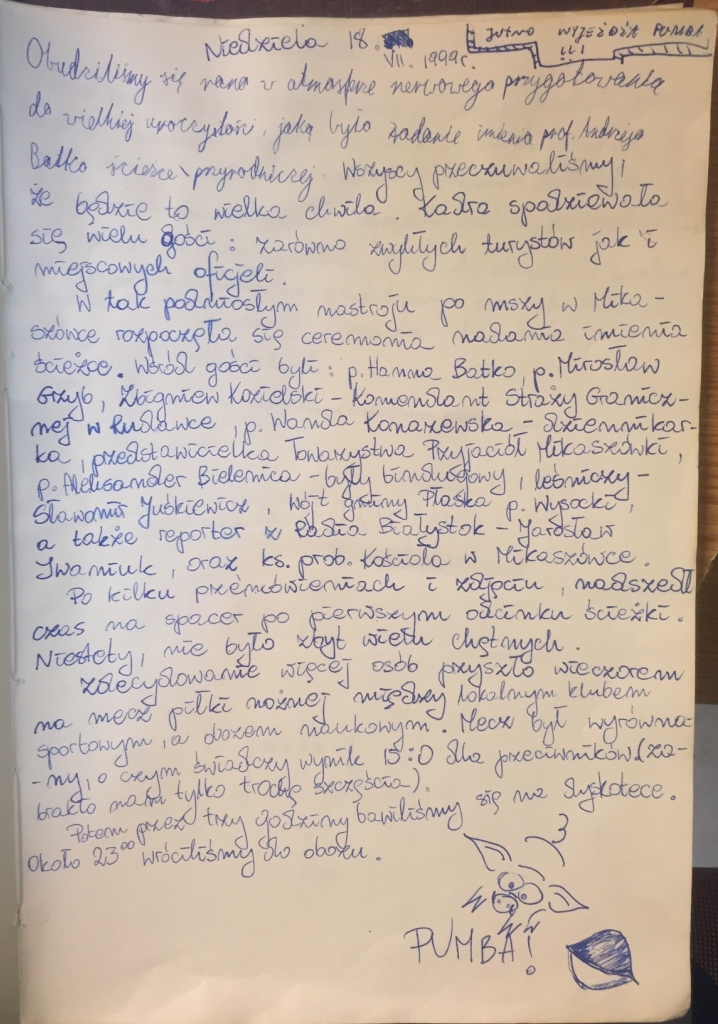 Niedziela 18. VII. 1999r.
JUTRO WYJEŻDŻA PUMBA !!!
Obudziliśmy się rano w atmosferze nerwowego przygotowania
do wielkiej uroczystości, jaką było zadanie imienia prof. Andrzeja
Batko ścieżce przyrodniczej. Wszyscy przeczuwaliśmy,
że będzie to wielka chwila. Kadra spodziewała
się wielu gości: zarówno zwykłych turystów jak i
miejscowych oficjeli.
W tak podniosłym nastroju po mszy w Mika-
szówce rozpoczęła się ceremonia nadania imienia
ścieżce. Wśród gości byli: p. Hanna Batko, p. Mirosław
Grzyb, Zbigniew Kozielski - Komendant Straży Granicz-
nej w Rudawce, p. Wanda Konarzewska - dziennikar-
ka, przedstawicielka Towarzystwa Przyjaciół Mikaszówki,
p. Aleksander Bielenica - były bindugowy, leśniczy -
Sławomir Juśkiewicz, wójt gminy Płaska p. Wysocki,
a także reporter z Radia Białystok - Jarosław
Iwaniuk, oraz ks. prob. Kościoła w Mikaszówce.
Po kilku przemówieniach i zdjęciu, nadszedł
czas na spacer po pierwszym odcinku ścieżki.
Niestety, nie było zbyt wielu chętnych.
Zdecydowanie więcej osób przyszło wieczorem
na mecz piłki nożnej między lokalnym klubem
sportowym, a obozem naukowym. Mecz był wyrówna-
-ny, o czym świadczy wynik 15:0 dla przeciwników (za-
brakło nam tylko trochę szczęścia).
Potem przez trzy godziny bawiliśmy się na dyskotece.
Około 23⁰⁰ wróciliśmy do obozu.
PUMBA!